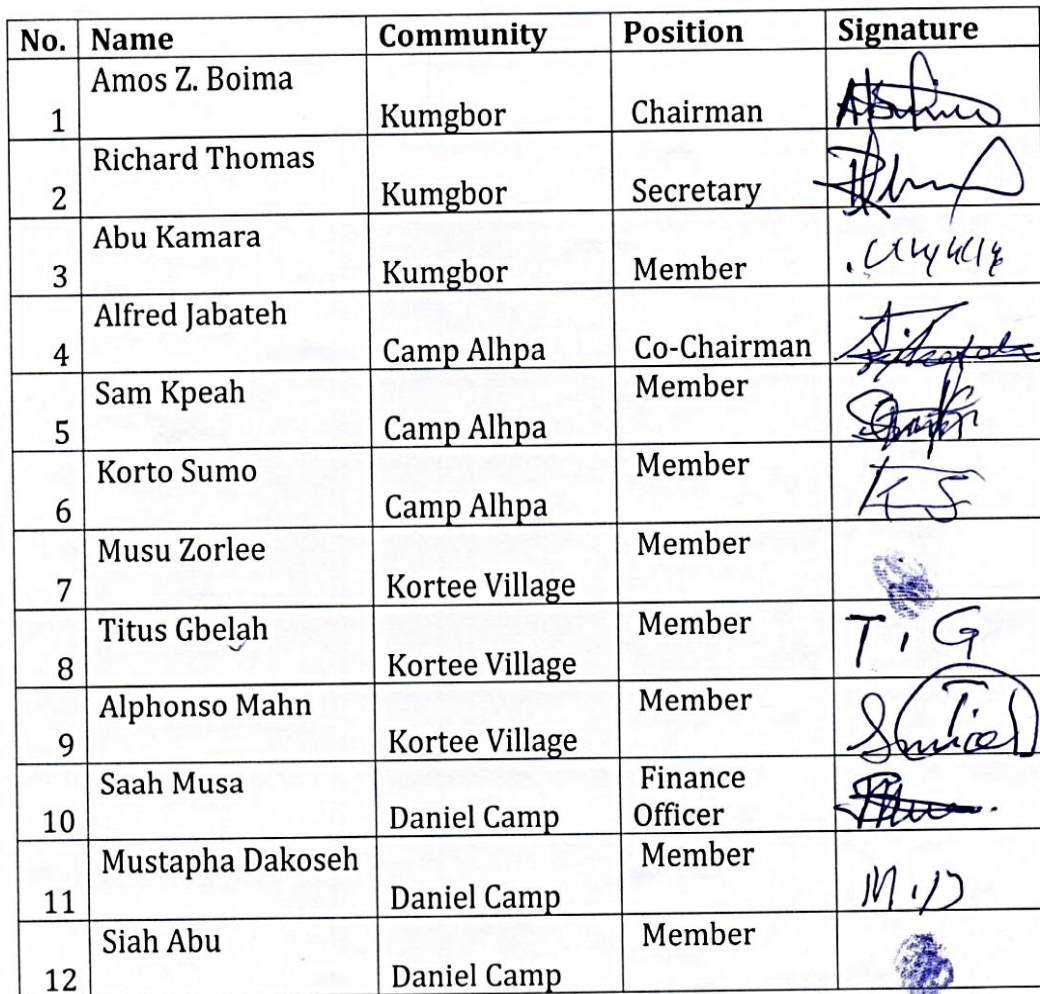 No. Name Community Position Signature
1 Amos Z. Boima Kumgbor Chairman
2 Richard Thomas Kumgbor Secretary
3 Abu Kamara Kumgbor Member
4 Alfred Jabateh Camp Alhpa Co-Chairman
5 Sam Kpeah Camp Alhpa Member
6 Korto Sumo Camp Alhpa Member K S
7 Musu Zorlee Kortee Village Member
8 Titus Gbelah Kortee Village Member T. G
9 Alphonso Mahn Kortee Village Member
10 Saah Musa Daniel Camp Finance Officer
11 Mustapha Dakoseh Daniel Camp Member M.D
12 Siah Abu Daniel Camp Member